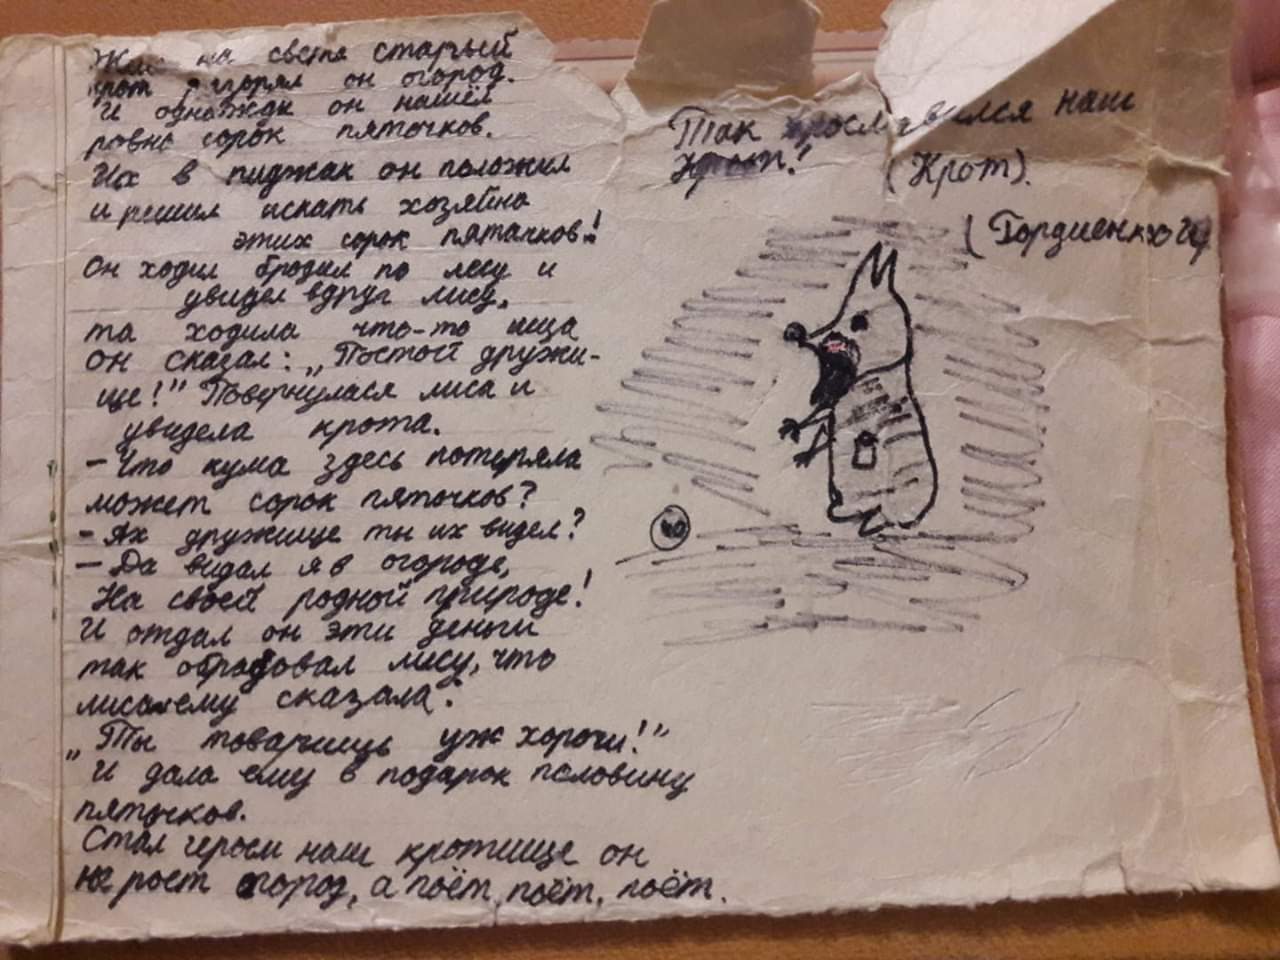 Жил на свете старый
крот горял он огород.
И однажды он нашёл
ровно сорок пяточков.
Их в пиджак он положил
и решил искать хозяйна
этих сорок пятачков!
Он ходил бродил по лесу и
увидел вдруг лису,
та ходила что-то ища
он сказал: „Постой дружи-
ще!" Повернулася лиса и
увидела крота.
- Что кума здесь потеряла
может сорок пяточков?
- Ах дружище ты их видел?
- Да видал я в огороде,
На своей родной природе!
И отдал он эти деньги
так обрадовал лису, что
лиса ему сказала:
„Ты товарищь уж хорочи!"
И дала ему в подарок половину
пяточков.
Стал героем наш кротище он
не роет огород, а поёт, поёт, поёт.
Так прославился наш
крот!
(Крот).
(Гордиенко
40